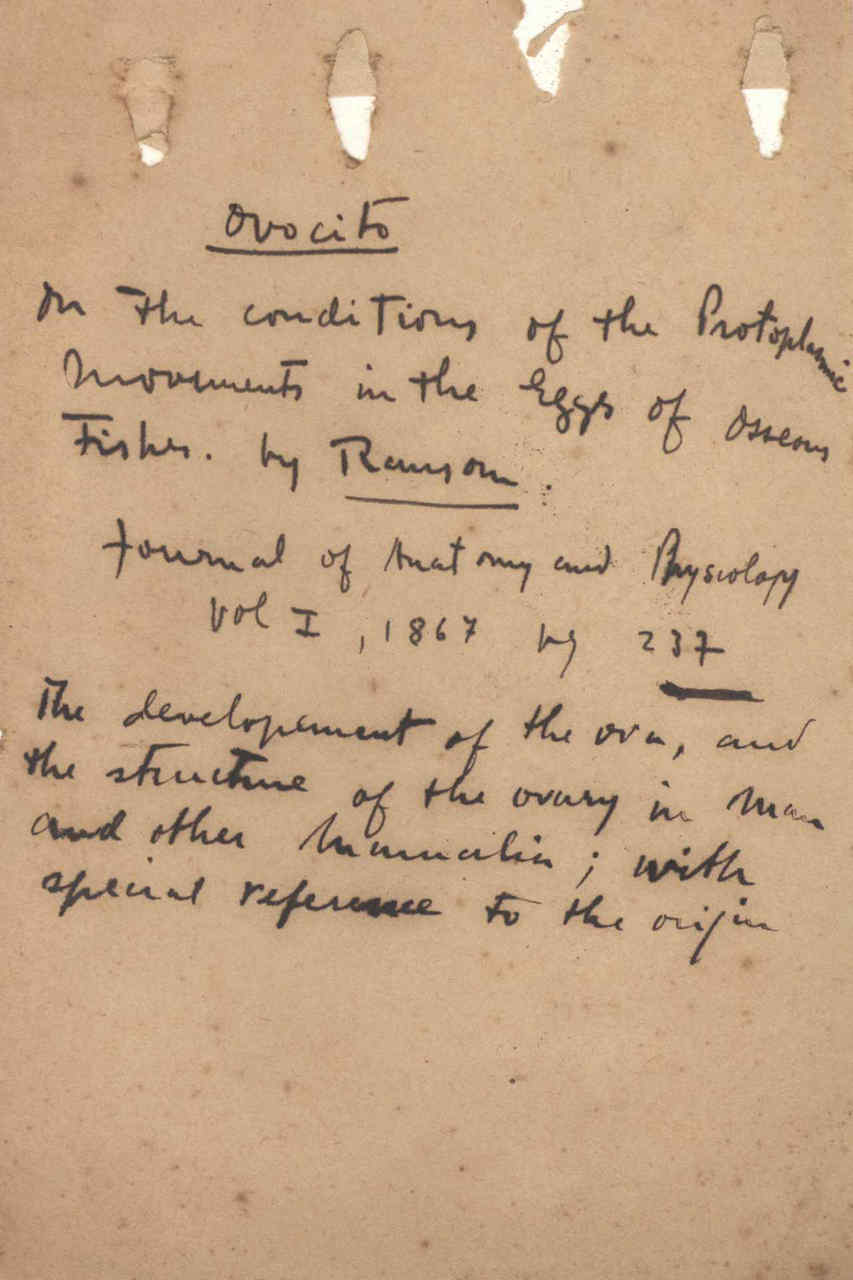 Ovocito
On the conditions of the Protoplasmic
Movements in the Eggs of Osseous
Fishes. by Ransom.
Journal of Anatomy and Physiology
vol I, 1867 pg 237
The developement of the ova, and
the structure of the ovary in Man
and other Mammalia; with
special reference to the origin